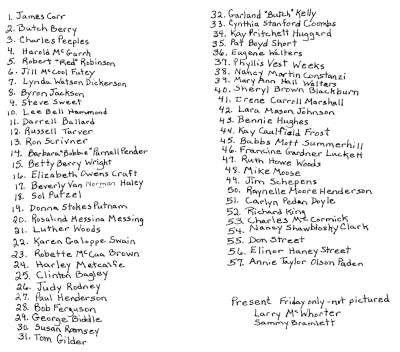 1. James Carr
2. Butch Berry
3. Charles Peeples
4. Harold McGarrh
5. Robert "Red" Robinson
6. Jill McCool Futey
7. Lynda Watson Dickerson
8. Byron Jackson
9. Steve Sweet
10. Lee Bell Hammond
11. Darrell Ballard
12. Russell Tarver
13. Ron Scrivner
14. Barbara "Bobbie" Purnall Pender
15. Betty Berry Wright
16. Elizabeth Owens Craft
17. Beverly Van Norman Haley
18. Sol Putzel
19. Donna Stokes Putnam
20. Rosalind Messina Messing
21. Luther Woods
22. Karen Galoppe Swain
23. Robette McCua Brown
24. Harley Metcalfe
25. Clinton Bagley
26. Judy Rodney
27. Paul Henderson
28. Bob Ferguson
29. George Biddle
30. Susan Ramsey
31. Tom Gilder
32. Garland "Butch" Kelly
33. Cynthia Stanford Coombs
34. Kay Pritchett Huggard
35. Pat Boyd Short
36. Eugene Walters
37. Phyllis Vest Weeks
38. Nancy Martin Constanzi
39. Mary Ann Hall Walters
40. Sheryl Brown Blackburn
41. Irene Carroll Marshall
42. Lara Mason Johnson
43. Bennie Hughes
44. Kay Caulfield Frost
45. Babbs Mott Summerhill
46. Francine Gardner Luckett
47. Ruth Howe Woods
48. Mike Moose
49. Jim Schepens
50. Raynelle Moore Henderson
51. Carlyn Peden Doyle
52. Richard King
53. Charles McCormick
54. Nancy Shawblosky Clark
55. Don Street
56. Elinor Haney Street
57. Annie Taylor Olson Paden
Present Friday only - not pictured
Larry McWhorter
Sammy Bramlett